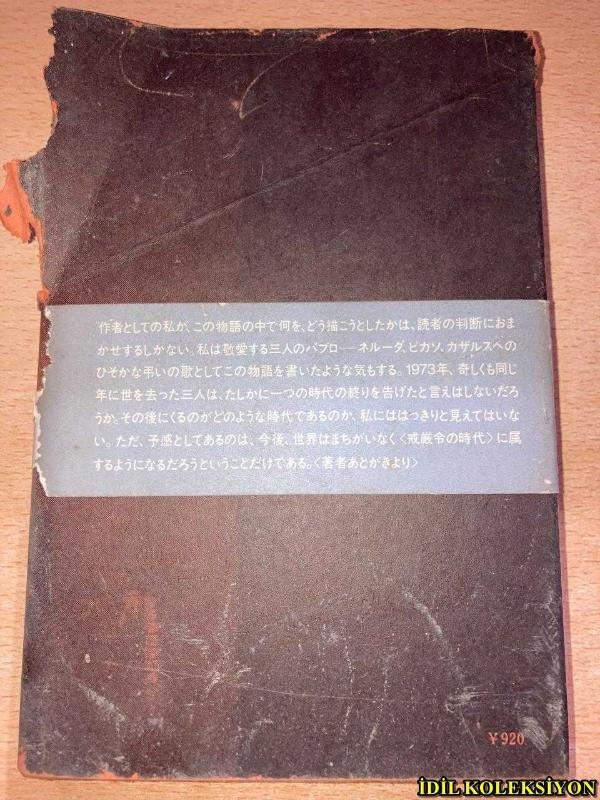 作者としての私が、この物語の中で何を、どう描こうとしたかは、読者の判断におま
かせするしかない。私は敬愛する三人のパブロ——ネルーダ、ピカソ、カザルスへの
ひそかな弔いの歌としてこの物語を書いたような気もする。1973年、奇しくも同じ
年に世を去った三人は、たしかに一つの時代の終りを告げたと言えはしないだろ
うか。その後にくるのがどのような時代であるのか、私にははっきりと見えてはいな
い。ただ、予感としてあるのは、今後、世界はまちがいなく〈戒厳令の時代〉に属
するようになるだろうということだけである。〈著者あとがきより〉
￥920
İDİL KOLEKSİYON